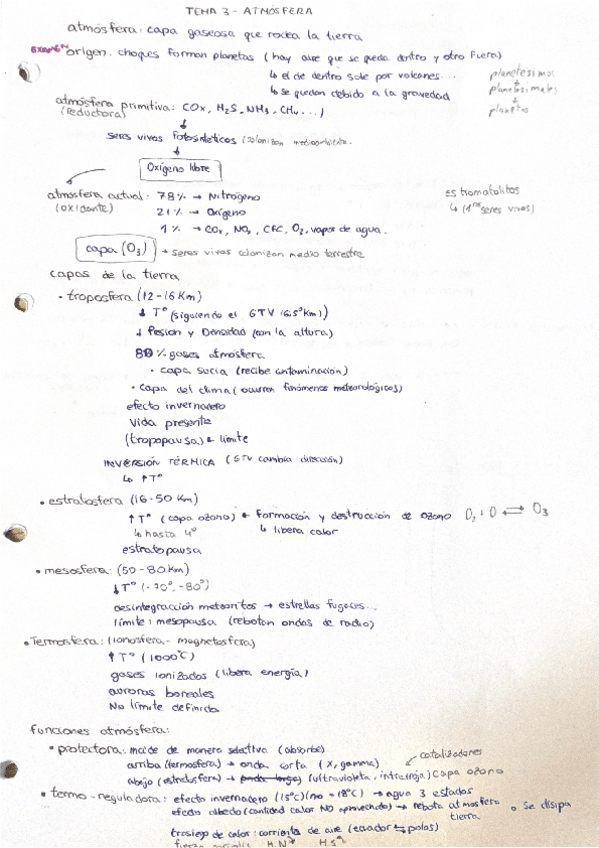 TEMA 3 - ATMÓSFERA
atmósfera: capa gaseosa que rodea la tierra
origen: choques forman planetas (hay aire que se queda dentro y otro fuera)
↳ el de dentro sale por volcanes...
↳ se quedan debido a la gravedad
planetesimal
↓
planetesimales
↓
planetas
atmósfera primitiva: COx, H2S, NH3, CH4...)
(Reductora)
↓
seres vivos fotosintéticos (colonizan medio
↓
Oxígeno libre
atmósfera actual: 78% → Nitrógeno
(oxidante)
21% → Oxígeno
1% → COx, NOx, CFC, O2, vapor de agua.
estromatolitos
↳ (1ros seres vivos)
capa (O3) → seres vivos colonizan medio terrestre
capas de la tierra
· troposfera (12-16 Km)
↓ Tº (siguiendo el GTV (6.5º/Km))
↓ Presion y Densidad (con la altura)
80% gases atmósfera
· capa sucia (recibe contaminación)
· capa del clima (ocurren fenómenos meteorológicos)
efecto invernadero
vida presente
(tropopausa) ← límite
INVERSIÓN TÉRMICA (GTV cambia dirección)
↳ ↑Tº
· estratosfera (16-50 Km)
↑Tº (capa ozono) ← Formación y destrucción de ozono O2 + O ⇌ O3
↳ hasta 4º ↳ libera calor
estratopausa
· mesosfera: (50-80 Km)
↓Tº (-70º, -80º)
desintegracción meteoritos → estrellas fugaces...
límite: mesopausa (rebotan ondas de radio)
· Termosfera: (Ionosfera - magnetosfera)
↑Tº (1000ºC)
gases ionizados (libera energía)
auroras boreales
No límite definido
funciones atmósfera:
· protectora: incide de manera selectiva (absorbe)
arriba (termosfera) → onda corta (X, gamma)
catalizadores
abajo (estratosfera) → (ultravioleta, infraroja) capa ozono
· termo-reguladora: efecto invernadero (15ºC) (no = -18ºC) → agua 3 estados
efecto albedo (cantidad calor NO aprovechado) → rebota atmósfera o se disipa
tierra
trasiego de calor: corriente de aire (ecuador ⇆ polos)